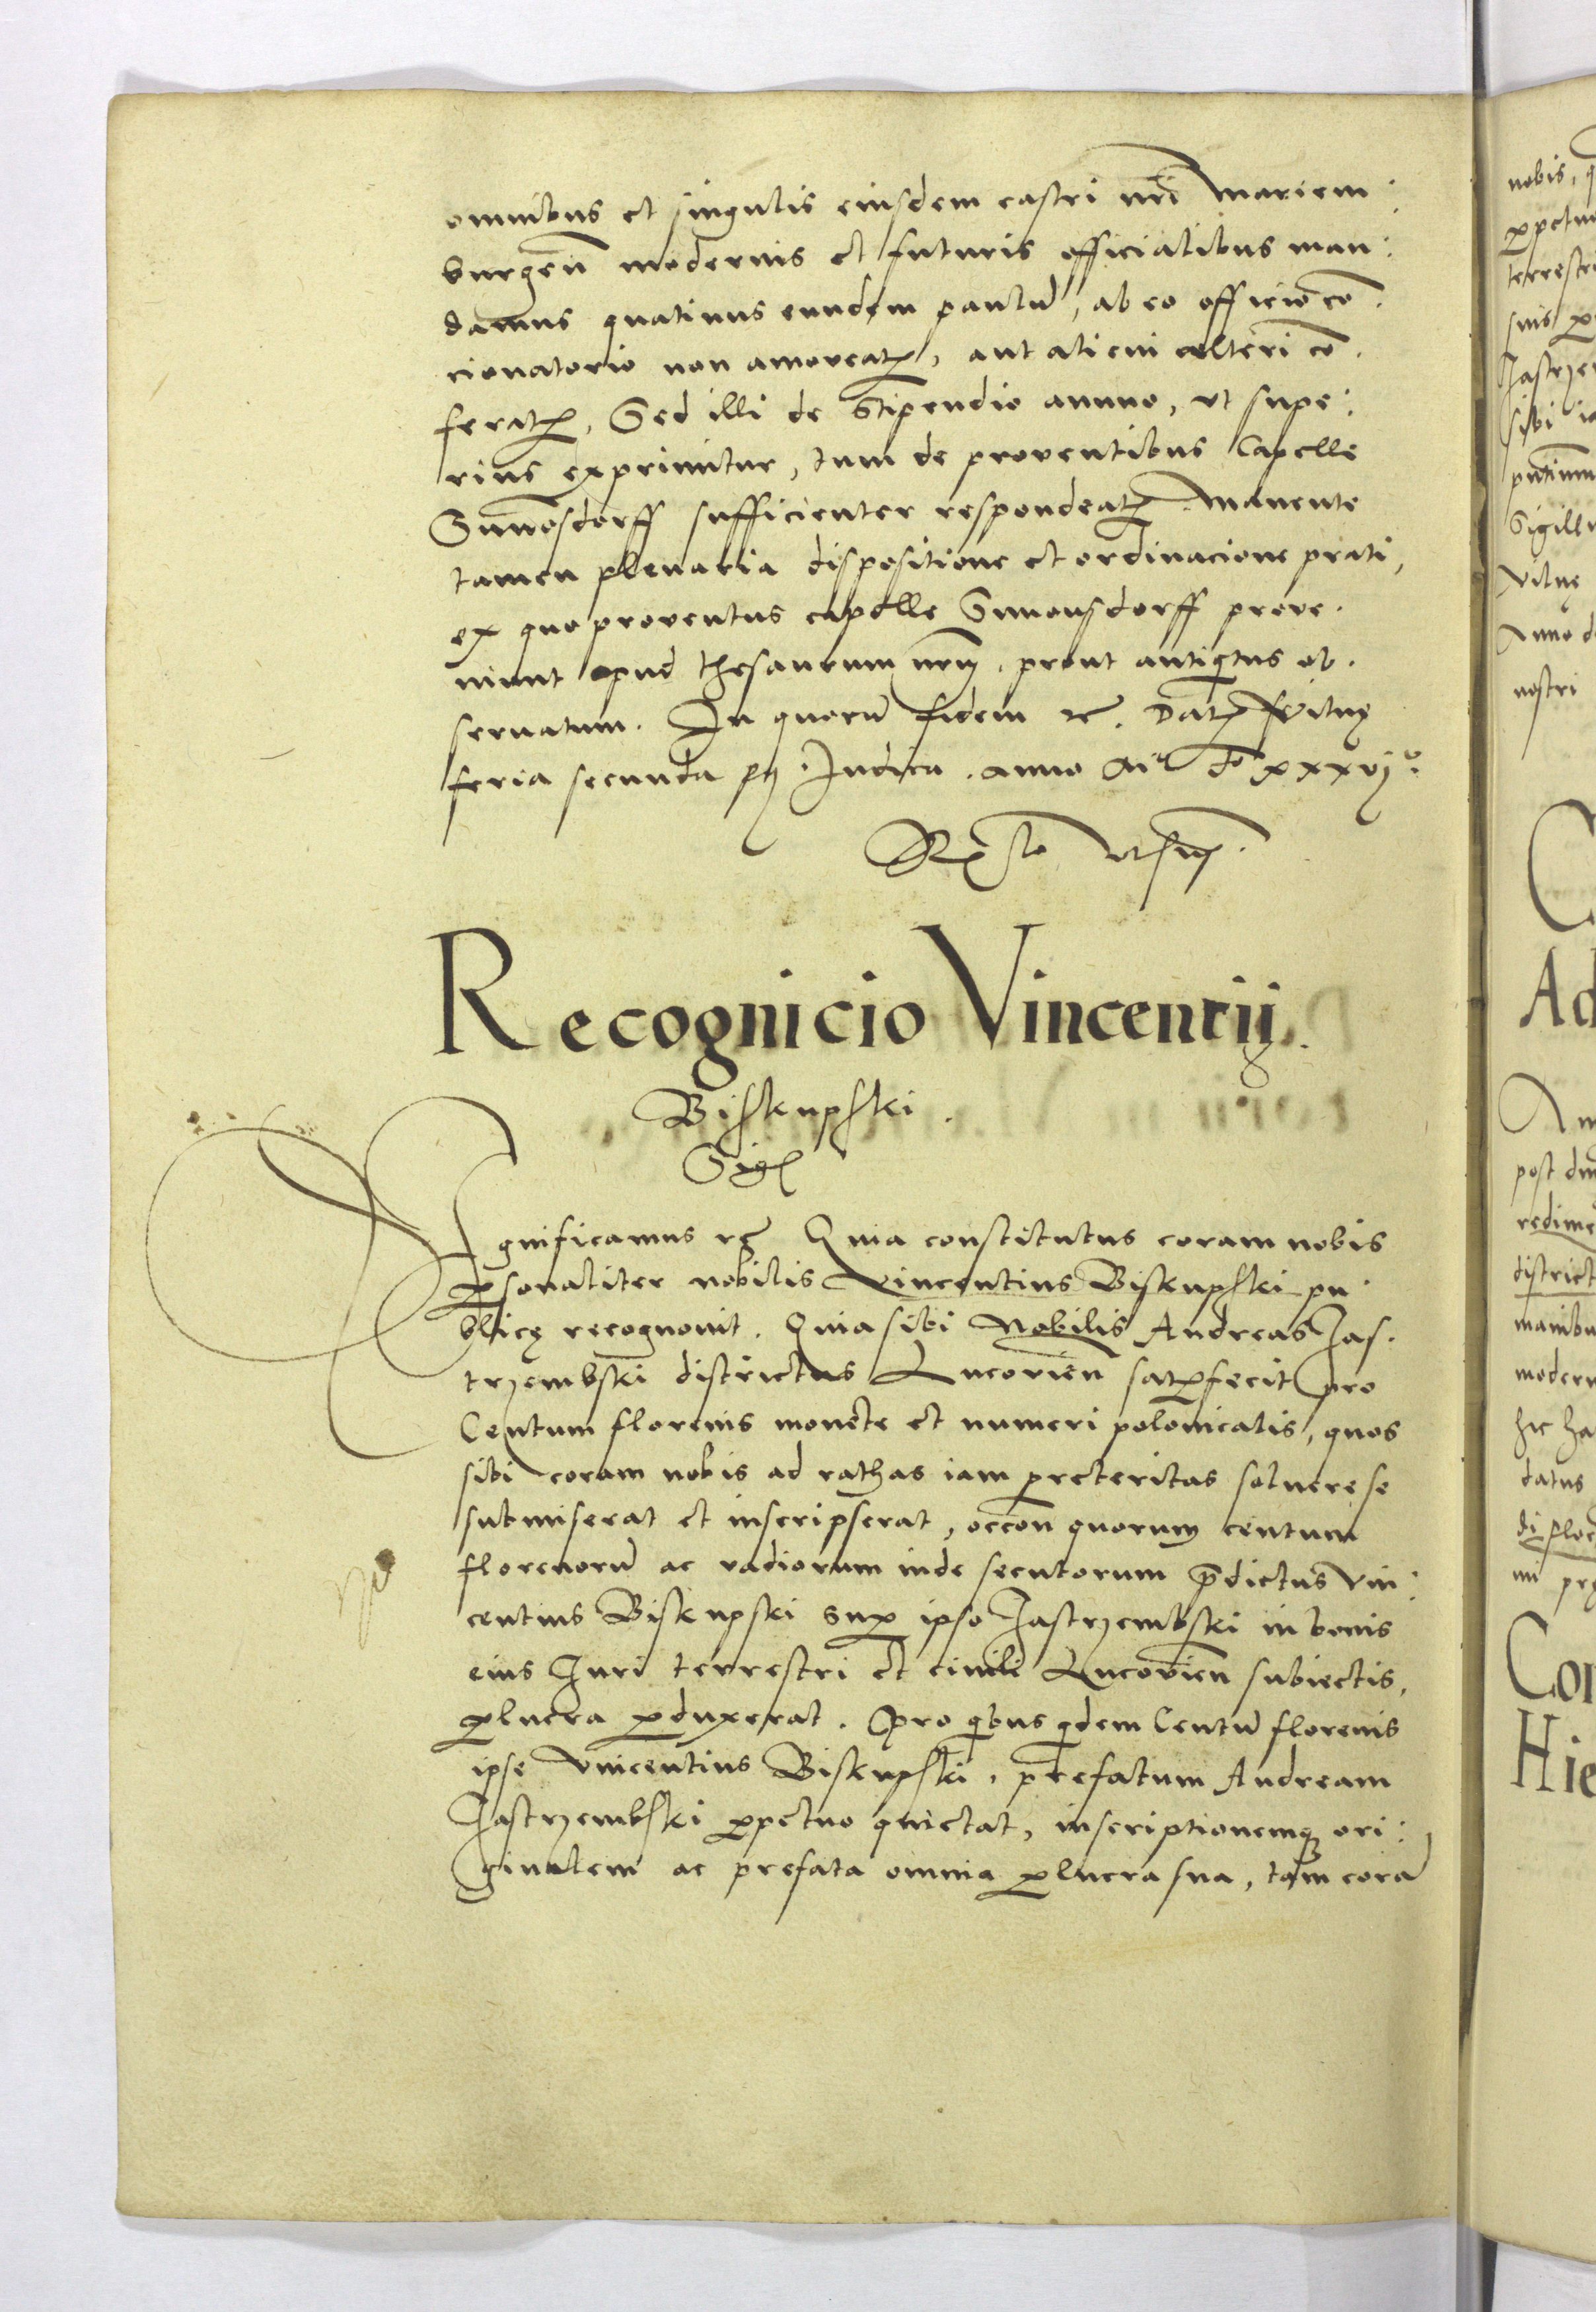 omnibus et singulis eiusdem castri nrī Mariem:
burgeñ modernis et futuris officialibus man:
damus quatinus eundem paulū, ab eo officio cō.
cionatorio non amoveatꝭ, aut alicui alteri cō.
feratꝭ, Sed illi de Stipendio annuo, vt supe:
rius exprimitur, tum de proventibus Capelle
sufficienter respondeatꝭ. Manente
tamen plenaria dispositione et ordinacione prati,
ex quo proventus capelle Simonsdorff prove.
niunt apud thesaurum nrm̄, prout antiqtus ob.
servatum. In quorū fidem etc. Datꝭ
feria secunda Judica. anno Mo do xxxvijo.
Rō vt sup̄.
Recognicio Vincentij.
Biskupski.
Sigl
gnificamus etc Quia constitutus coram nobis
ꝑsonaliter nobilis Vincentius Biskupski pu
blicę recognovit. Quia sibi Nobilis Andreas Jas.
trzembski districtus Lucovieñ satꝭfecit pro
Centum florenis monete et numeri polonicalis, quos
sibi coram nobis ad rathas iam preteritas soluere se
submiserat et inscripserat, occōn quorum centum
florenorū ac vadiorum inde secutorum p̄dictus Vin:
centius Biskupski sup̱ ipso Jastrzembski in bonis
eius Juri terrestri et civili Lucovieñ subiectis,
ꝑlucra ꝑduxerat. Pro qibus qidem Centū florenis
ipse Vincentius Biskupski, prefatum Andream
Jastrzembski ꝑpetuo quictat, inscriptionemqꝫ ori:
ginalem ac prefata omnia ꝑlucra sua, tam corā